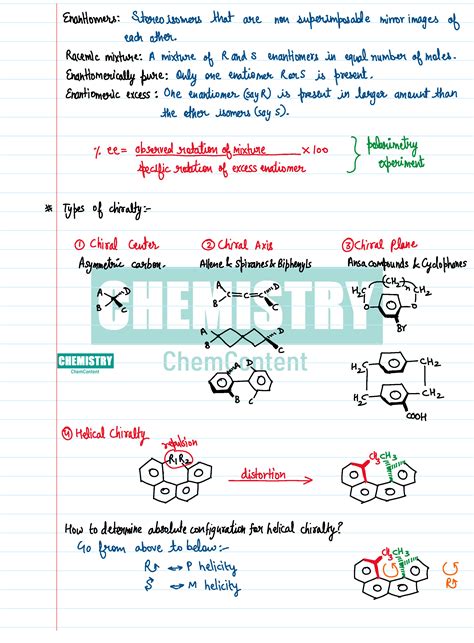 Enantiomers: Stereoisomers that are non superimposable mirror images of
each other.
Racemic mixture: A mixture of R and S enantiomers in equal number of moles.
Enantiomerically pure: Only one enatiomer R or S is present.
Enantiomeric excess: One enantiomer (say R) is present in larger amount than
the other isomers (say S).
% ee = observed rotation of mixture × 100
specific rotation of excess enatiomer
polarimetry
experiment
* Types of chiralty:-
① Chiral Center
Asymmetric carbon.
② Chiral Axis
Allene & Spiranes & Biphenyls
③ Chiral Plane
Ansa compounds & Cyclophanes
A D B C
A B D C
H2C (CH2)n CH2
O O
Br
CHEMISTRY
ChemContent
CHEMISTRY
ChemContent
A B D C
A D B C
H2C CH2
H2C CH2
COOH
④ Helical Chiralty
repulsion
R1 R2
distortion
CH3 CH3
How to determine absolute configuration for helical chiralty?
Go from above to below:-
R ↔ P helicity
S ↔ M helicity
CH3 CH3
R